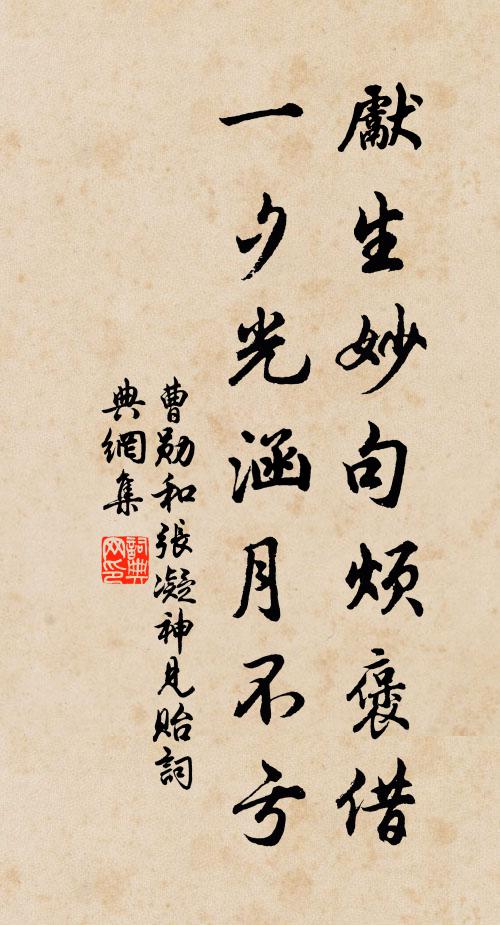 獻生妙句煩褒借
一夕光涵月不亏
曹勛和張凝神見貽詞
典網集
詞典
网印